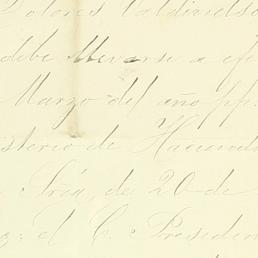 Dolores Valdivielso
debe llevarse a efe
Marzo del año pp.
isterio de Hacienda
Sría. de 20 de
z: el C. Presiden